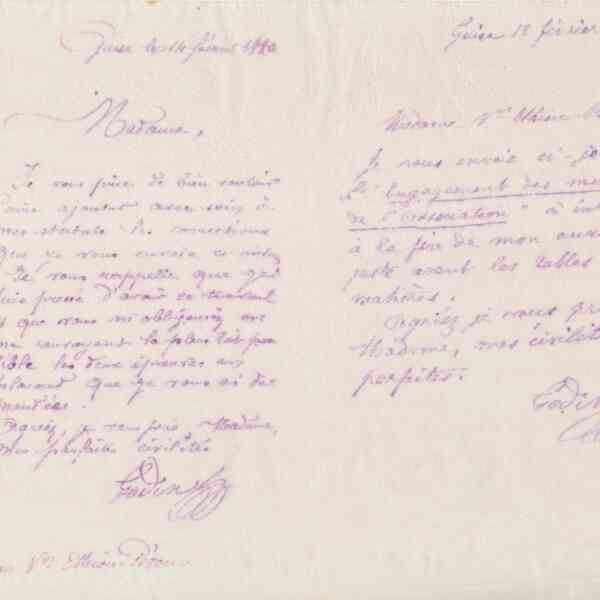 Guise le 14 février 1880
Madame,
Je vous prie de bien vouloir
faire ajouter avec soin à
mes statuts les corrections
que je vous envoie ci-inclus
Je vous rappelle que je
suis pressé d'avoir ce travail
et que vous m'obligerez en
me renvoyant le plus tôt pos
sible les deux épreuves en
placard que je vous ai de
mandées.
Agréez, je vous prie, Madame,
mes parfaites civilités
Godin
Vve
Guise 18 février
Madame Vve
Je vous envoie ci-jo
l'"Engagement des me
de l'Association" à
à la fin de mon ouv
juste avant les tables
matières.
Agréez je vous pri
Madame, mes civilit
parfaites.
Godin